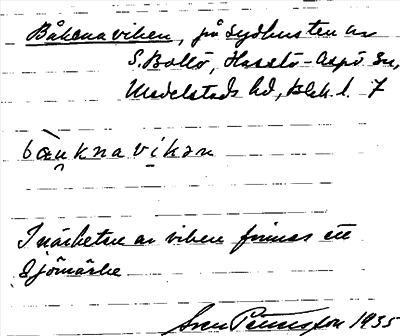 Båkenaviken, på sydkusten av
S. Bollö, Hasslö-Aspö sn,
Medelstads hd, Blek. l. 7
bæu̯knavi̱kən
I närheten av viken finnes ett
sjömärke
Sven Pettersson 1935